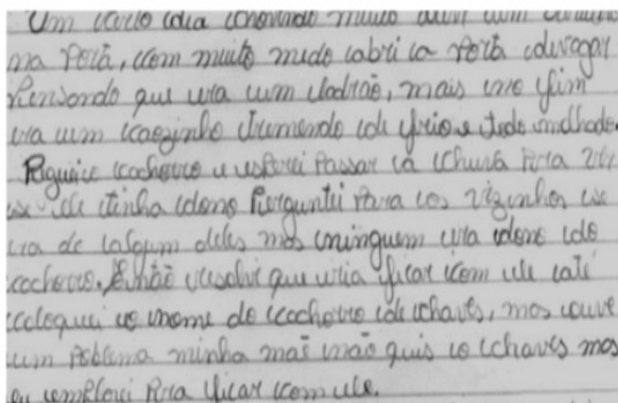 Um certo dia chovendo muito ouvi um
na Portã, com muito medo abri a Portã devagar
Pensondo que era um ladrão, mais no fim
era um caozinho tremendo de frio e todo molhado.
Peguei o cachorro e esperei Passar a chuva Pera ver
se ele tinha dono Perguntei Para os vizinhos se
era de algum deles mos ninguem era dono do
cachorro. Então resolvi que iria ficar com ele até
coloquei o nome do cachorro de chaves, mos ouve
um Poblema minha mãe não quis o chaves mos
eu emplorei Pera ficar com ele.